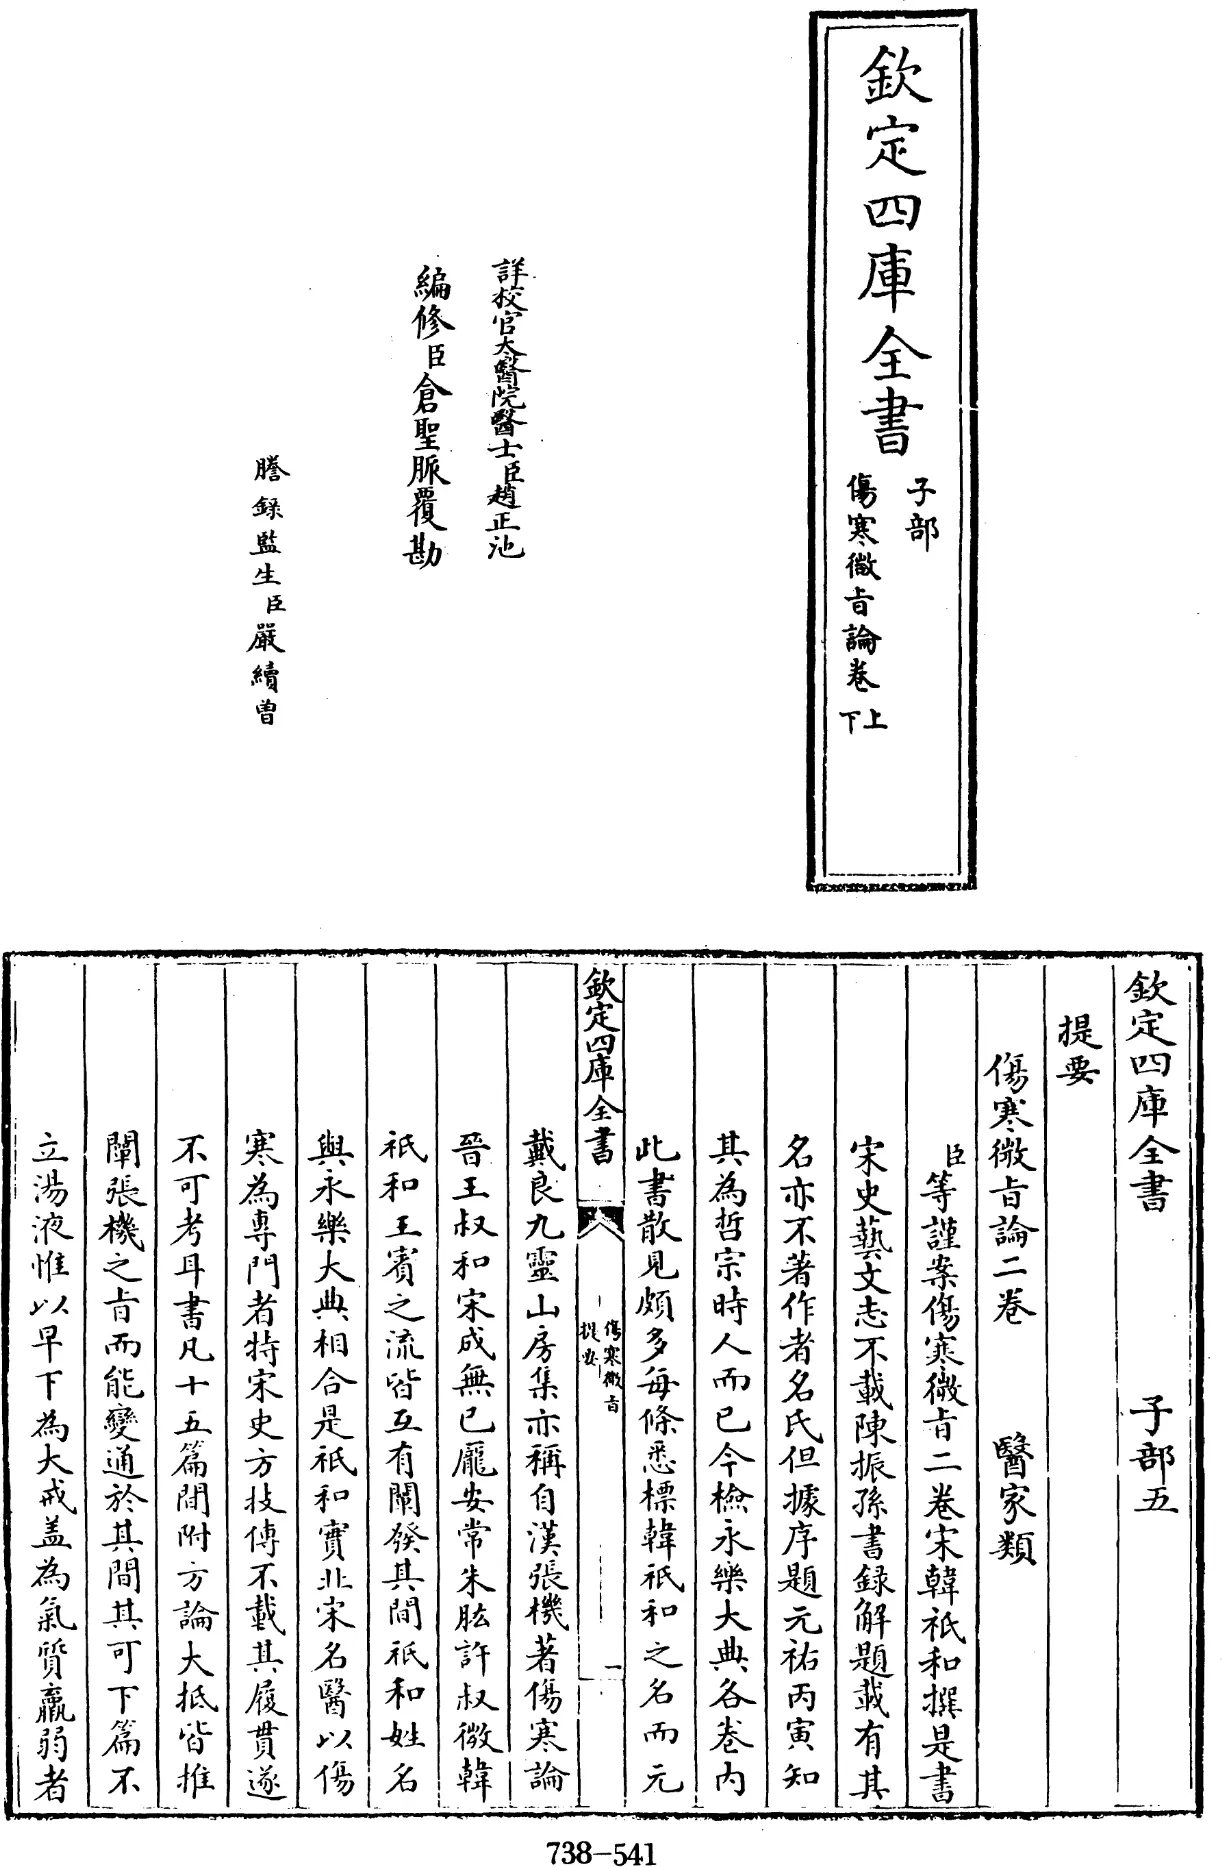 欽定四庫全書
子部
傷寒微旨論卷上下
詳校官太醫院醫士臣趙正池
編修臣倉聖脈覆勘
謄錄監生臣嚴續曾
欽定四庫全書 子部五
提要
傷寒微旨論二卷 醫家類
臣等謹案傷寒微旨二卷宋韓祇和撰是書
宋史藝文志不載陳振孫書錄解題載有其
名亦不著作者名氏但據序題元祐丙寅知
其為哲宗時人而已今檢永樂大典各卷內
此書散見頗多每條悉標韓祇和之名而元
欽定四庫全書
傷寒微旨
提要
一
戴良九靈山房集亦稱自漢張機著傷寒論
晉王叔和宋成無已龐安常朱肱許叔微韓
祇和王賓之流皆互有闡發其間祇和姓名
與永樂大典相合是祇和實北宋名醫以傷
寒為專門者特宋史方技傳不載其履貫遂
不可考耳書凡十五篇間附方論大抵皆推
闡張機之旨而能變通於其間其可下篇不
立湯液惟以早下為大戒蓋為氣質羸弱者
738-541